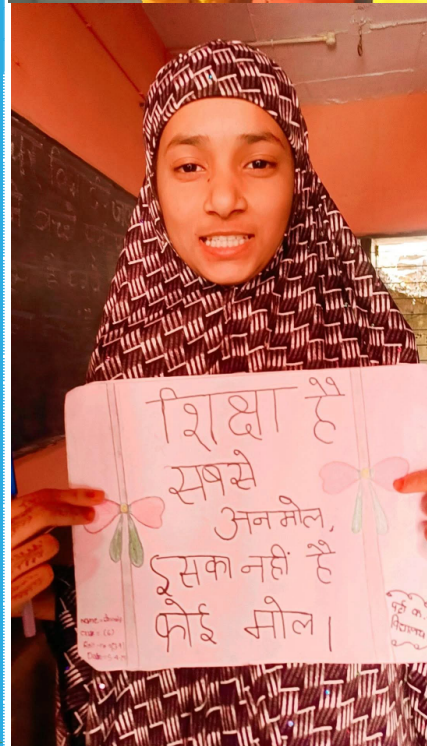 शिक्षा है
सबसे
अनमोल,
इसका नहीं है
कोई मोल।